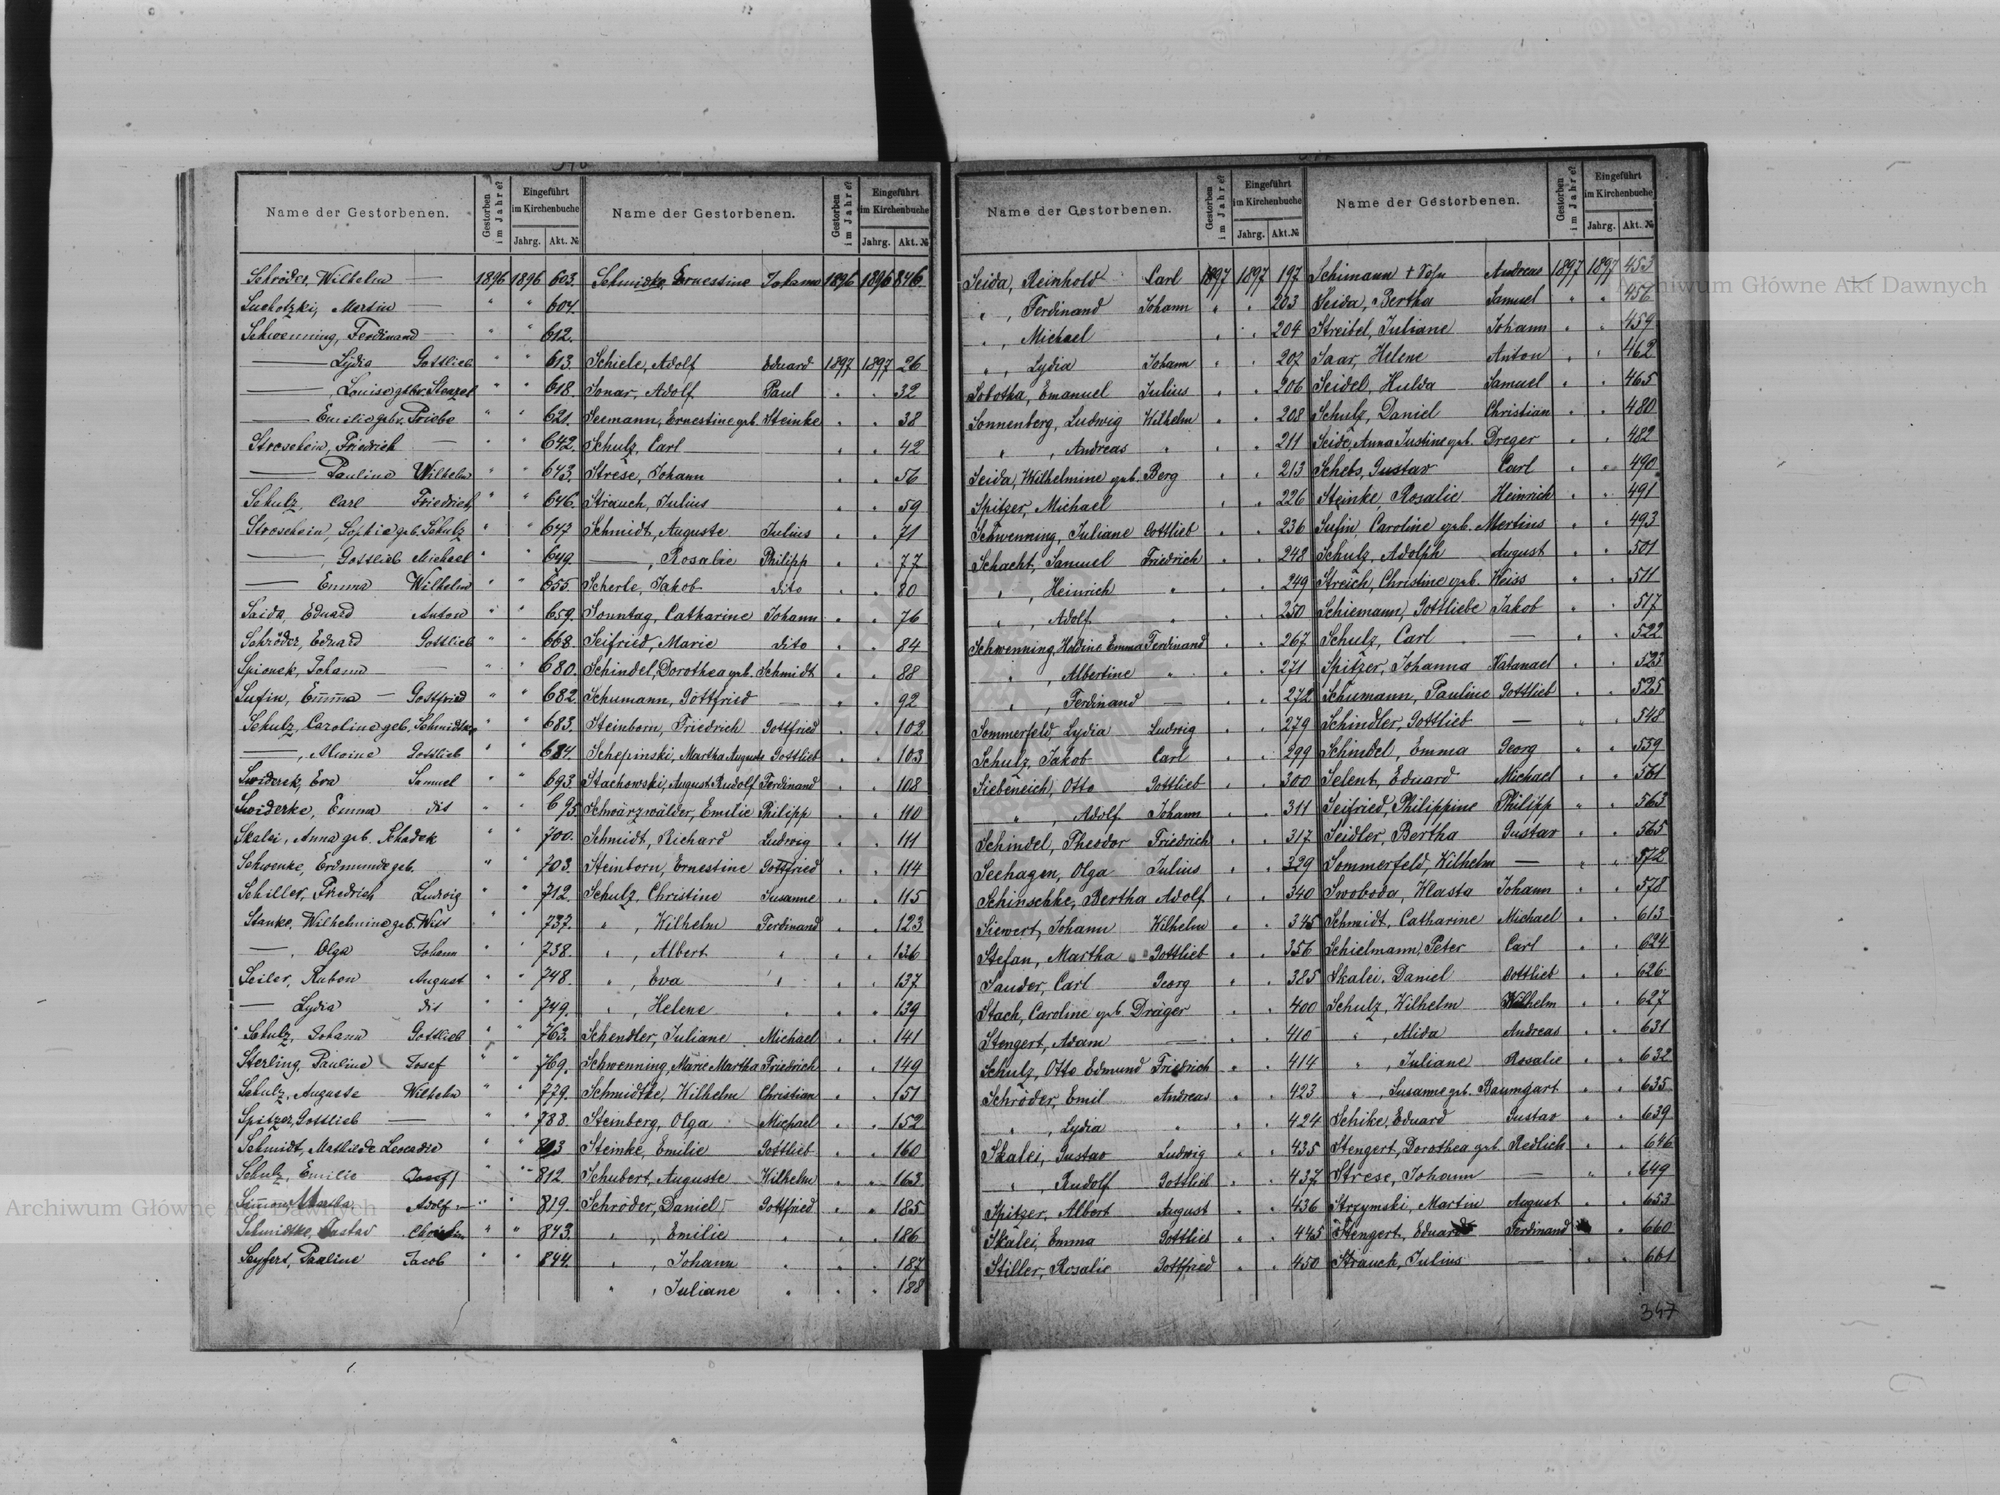 Name der Gestorbenen. Gestorben im Jahre? Eingeführt im Kirchenbuche Jahrg. Akt. №
Schröder, Wilhelm — 1896 1896 603.
Suchotzki, Martin — " " 604.
Schwenning, Ferdinand — " " 612.
— Lydia Gottlieb " " 613.
— Louise geb. Stenzel " " 618.
— Emilie geb. Priebe " " 621.
Stroschein, Friedrich — " " 642.
— Pauline Wilhelm " " 643.
Schulz, Carl Friedrich " " 646.
Stroschein, Sophie geb. Schulz " " 647
—, Gottlieb Michael " " 649.
— Emma Wilhelm " " 655.
Saida, Eduard Anton " " 659.
Schröder, Eduard Gottlieb " " 668.
Spionek, Johann — " " 680.
Sufin, Emma — Gottfried " " 682
Schulz, Caroline geb. Schmidtke " " 683.
—, Alwine Gottlieb " " 684.
Swiderek, Eva Samuel " " 693.
Swiderke, Emma dit " " 695.
Skalei, Anna geb. Schadek " " 700.
Schwenke, Erdmunde geb. " " 703.
Schiller, Friedrich Ludwig " " 712.
Stanke, Wilhelmine geb. Wild " " 737.
—, Olga Johann " " 738.
Seiler, Ruben August " " 748.
— Lydia dit " " 749.
Schulz, Johann Gottlieb " " 763.
Sterling, Pauline Josef " " 769.
Schulz, Auguste Wilhelm " " 779.
Spitzer, Gottlieb — " " 788.
Schmidt, Mathilde Leocadie " " 803
Schulz, Emilie Josef " " 812
Simon, Martha Adolf " " 819.
Schmidtke, Gustav Christian " " 843.
Seyfert, Pauline Jacob " " 844.
Name der Gestorbenen. Gestorben im Jahre? Eingeführt im Kirchenbuche Jahrg. Akt. №
Schmidtke, Ernestine Johann 1896 1896 846
Schiele, Adolf Eduard 1897 1897 26
Sonar, Adolf Paul " " 32
Seemann, Ernestine geb. Steinke " " 38
Schulz, Carl — " " 42
Strese, Johann " " 56
Strauch, Julius " " 59
Schmidt, Auguste Julius " " 71
—, Rosalie Philipp " " 77
Scherle, Jakob dito " " 80
Sonntag, Catharine Johann " " 76
Seifried, Marie dito " " 84
Schindel, Dorothea geb. Schmidt " " 88
Schumann, Gottfried — " " 92
Steinborn, Friedrich Gottfried " " 102
Schepinski, Martha Auguste Gottlieb " " 103
Stachowski, August Rudolf Ferdinand " " 108
Schwarzwälder, Emilie Philipp " " 110
Schmidt, Richard Ludwig " " 111
Steinborn, Ernestine Gottfried " " 114
Schulz, Christine Susanne " " 115
" , Wilhelm Ferdinand " " 123
" , Albert " " " 136
" , Eva " " " 137
" , Helene " " " 139
Schendler, Juliane Michael " " 141
Schwenning, Marie Martha Friedrich " " 149
Schmidtke, Wilhelm Christian " " 151
Steinberg, Olga Michael " " 152
Steinke, Emilie Gottlieb " " 160
Schubert, Auguste Wilhelm " " 163
Schröder, Daniel Gottfried " " 185
" , Emilie " " " 186
" , Johann " " " 187
" , Juliane " " " 188
Name der Gestorbenen. Gestorben im Jahre? Eingeführt im Kirchenbuche Jahrg. Akt. №
Seida, Reinhold Carl 1897 1897 197
" , Ferdinand Johann " " 203
" , Michael " " 204
" , Lydia Johann " " 207
Sobotka, Emanuel Julius " " 206
Sonnenberg, Ludwig Wilhelm " " 208
" , Andreas " " " 211
Seida, Wilhelmine geb. Berg " " 213
Spitzer, Michael " " 226
Schwenning, Juliane Gottlieb " " 236
Schacht, Samuel Friedrich " " 248
" , Heinrich " " " 249
" , Adolf " " " 250
Schwenning, Holdine Emma Ferdinand " " 267
" , Albertine " " " 271
" , Ferdinand — " " 272
Sommerfeld, Lydia Ludwig " " 279
Schulz, Jakob Carl " " 299
Siebeneich, Otto Gottlieb " " 300
" , Adolf Johann " " 311
Schindel, Theodor Friedrich " " 317
Seehagen, Olga Julius " " 329
Schinschke, Bertha Adolf " " 340
Siewert, Johann Wilhelm " " 345
Stefan, Martha Gottlieb " " 356
Sauder, Carl Georg " " 385
Stach, Caroline geb Dräger " " 400
Stengert, Adam — " " 410
Schulz, Otto Edmund Friedrich " " 414
Schröder, Emil Andreas " " 423
" , Lydia " " " 424
Skalei, Gustav Ludwig " " 435
" , Rudolf Gottlieb " " 437
Spitzer, Albert August " " 436
Skalei, Emma Gottlieb " " 445
Stiller, Rosalie Gottfried " " 450
Name der Gestorbenen. Gestorben im Jahre? Eingeführt im Kirchenbuche Jahrg. Akt. №
Schimann + Sofn Andreas 1897 1897 453
Seida, Bertha Samuel " " 456
Streibel, Juliane Johann " " 459
Saar, Helene Anton " " 462
Seidel, Hulda Samuel " " 465
Schulz, Daniel Christian " " 480
Seide, Anna Justine geb. Dreger " " 482
Schebs, Gustav Carl " " 490
Steinke, Rosalie Heinrich " " 491
Sufin, Caroline geb. Mertins " " 493
Schulz, Adolph August " " 501
Streich, Christine geb. Weiss " " 511
Schiemann, Gottliebe Jakob " " 517
Schulz, Carl — " " 522
Spitzer, Johanna Natanael " " 523
Schumann, Pauline Gottlieb " " 525
Schindler, Gottlieb — " " 548
Schindel, Emma Georg " " 559
Selent, Eduard Michael " " 561
Seifried, Philippine Philipp " " 563
Seidler, Bertha Gustav " " 565
Sommerfeld, Wilhelm — " " 572
Swoboda, Wlasta Johann " " 578
Schmidt, Catharine Michael " " 613
Schielmann, Peter Carl " " 624
Skalei, Daniel Gottlieb " " 626
Schulz, Wilhelm Wilhelm " " 627
" , Alida Andreas " " 631
" , Juliane Rosalie " " 632
" , Susanne geb. Baumgart " " 635
Schike, Eduard Gustav " " 639
Stengert, Dorothea geb Redlich " " 646
Strese, Johann — " " 649
Strzymski, Martin August " " 653
Stengert, Eduard Ferdinand " 660
Strauch, Julius — " " 661
347
Archiwum Główne Akt Dawnych
Archiwum Główne Akt Dawnych